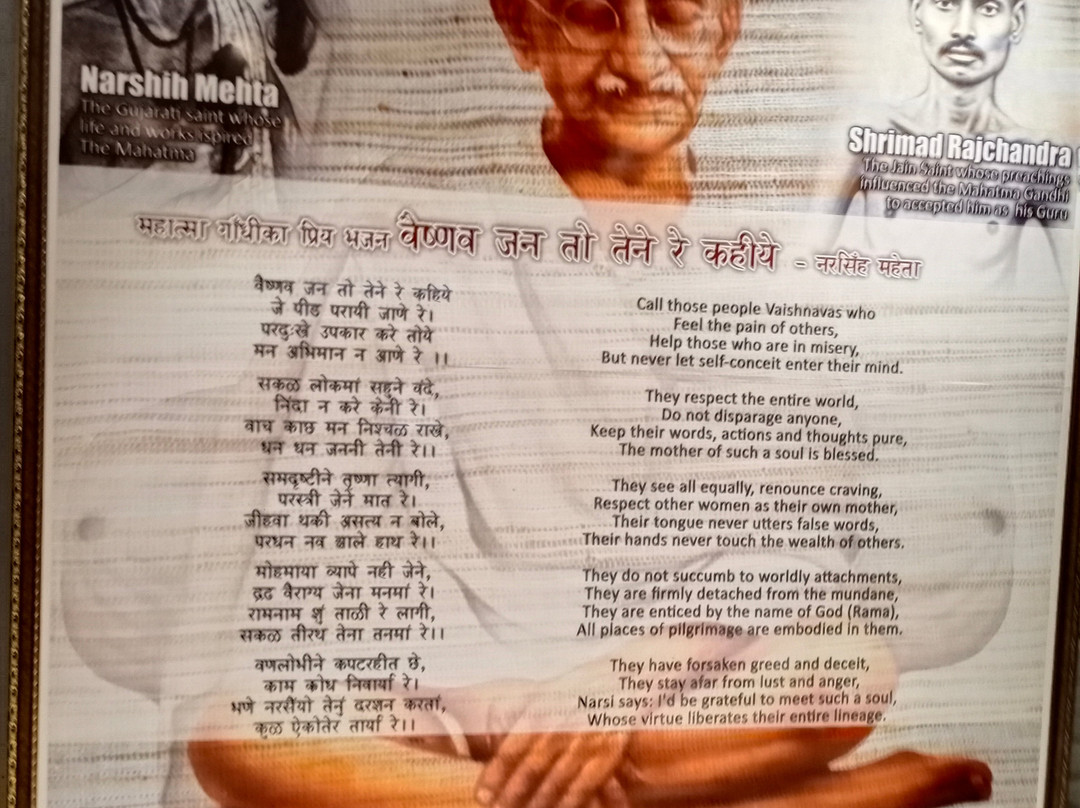 Narshih Mehta
The Gujarati saint whose
life and works ispired
The Mahatma
Shrimad Rajchandra
The Jain Saint whose preachings
influenced the Mahatma Gandhi
to accepted him as his Guru
महात्मा गाँधीका प्रिय भजन वैष्णव जन तो तेने रे कहीये - नरसिंह महेता
वैष्णव जन तो तेने रे कहिये
जे पीड परायी जाणे रे।
परदुःखे उपकार करे तोये
मन अभिमान न आणे रे ।।
सकळ लोकमां सहुने वंदे,
निंदा न करे केनी रे।
वाच काछ मन निश्चळ राखे,
धन धन जननी तेनी रे।।
समदृष्टीने तृष्णा त्यागी,
परस्त्री जेने मात रे।
जीहवा थकी असत्य न बोले,
परधन नव झाले हाथ रे।।
मोहमाया व्यापे नही जेने,
द्रढ वैराग्य जेना मनमां रे।
रामनाम शुं ताळी रे लागी,
सकळ तीरथ तेना तनमां रे।।
वणलोभीने कपटरहीत छे,
काम क्रोध निवार्या रे।
भणे नरसैंयो तेनुं दरशन करतां,
कुळ ऐकोतेर तार्या रे।।
Call those people Vaishnavas who
Feel the pain of others,
Help those who are in misery,
But never let self-conceit enter their mind.
They respect the entire world,
Do not disparage anyone,
Keep their words, actions and thoughts pure,
The mother of such a soul is blessed.
They see all equally, renounce craving,
Respect other women as their own mother,
Their tongue never utters false words,
Their hands never touch the wealth of others.
They do not succumb to worldly attachments,
They are firmly detached from the mundane,
They are enticed by the name of God (Rama),
All places of pilgrimage are embodied in them.
They have forsaken greed and deceit,
They stay afar from lust and anger,
Narsi says: I'd be grateful to meet such a soul,
Whose virtue liberates their entire lineage.